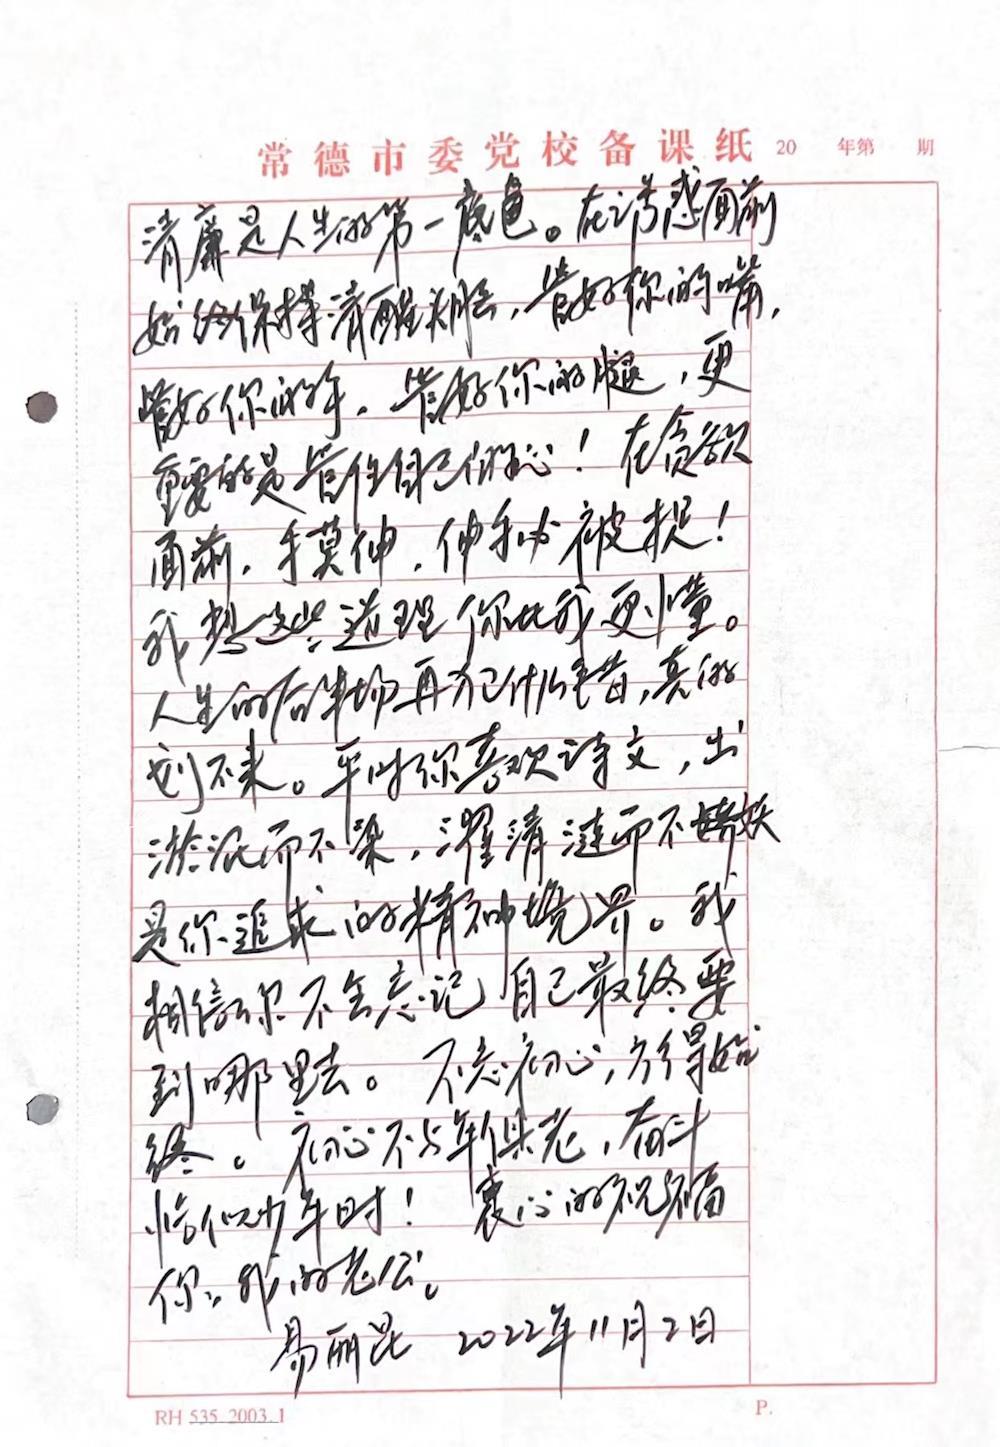 常德市委党校备课纸 20 年第 期
清廉是人生的第一底色。在诱惑面前
始终保持清醒头脑，管好你的嘴，
管好你的手，管好你的腿，更
重要的是管住自己的心！在贪欲
面前，手莫伸，伸手必被捉！
我想这些道理你比我更懂。
人生的后半场再犯什么错，真的
划不来。平时你喜欢诗文，出
淤泥而不染，濯清涟而不妖
是你追求的精神境界。我
相信你不会忘记自己最终要
到哪里去。不忘初心，方得始
终。初心不与年俱老，奋斗
恰似少年时！衷心的祝福
你，我的老公。
易丽昆 2022年11月2日
RH 535 2003.1 P.